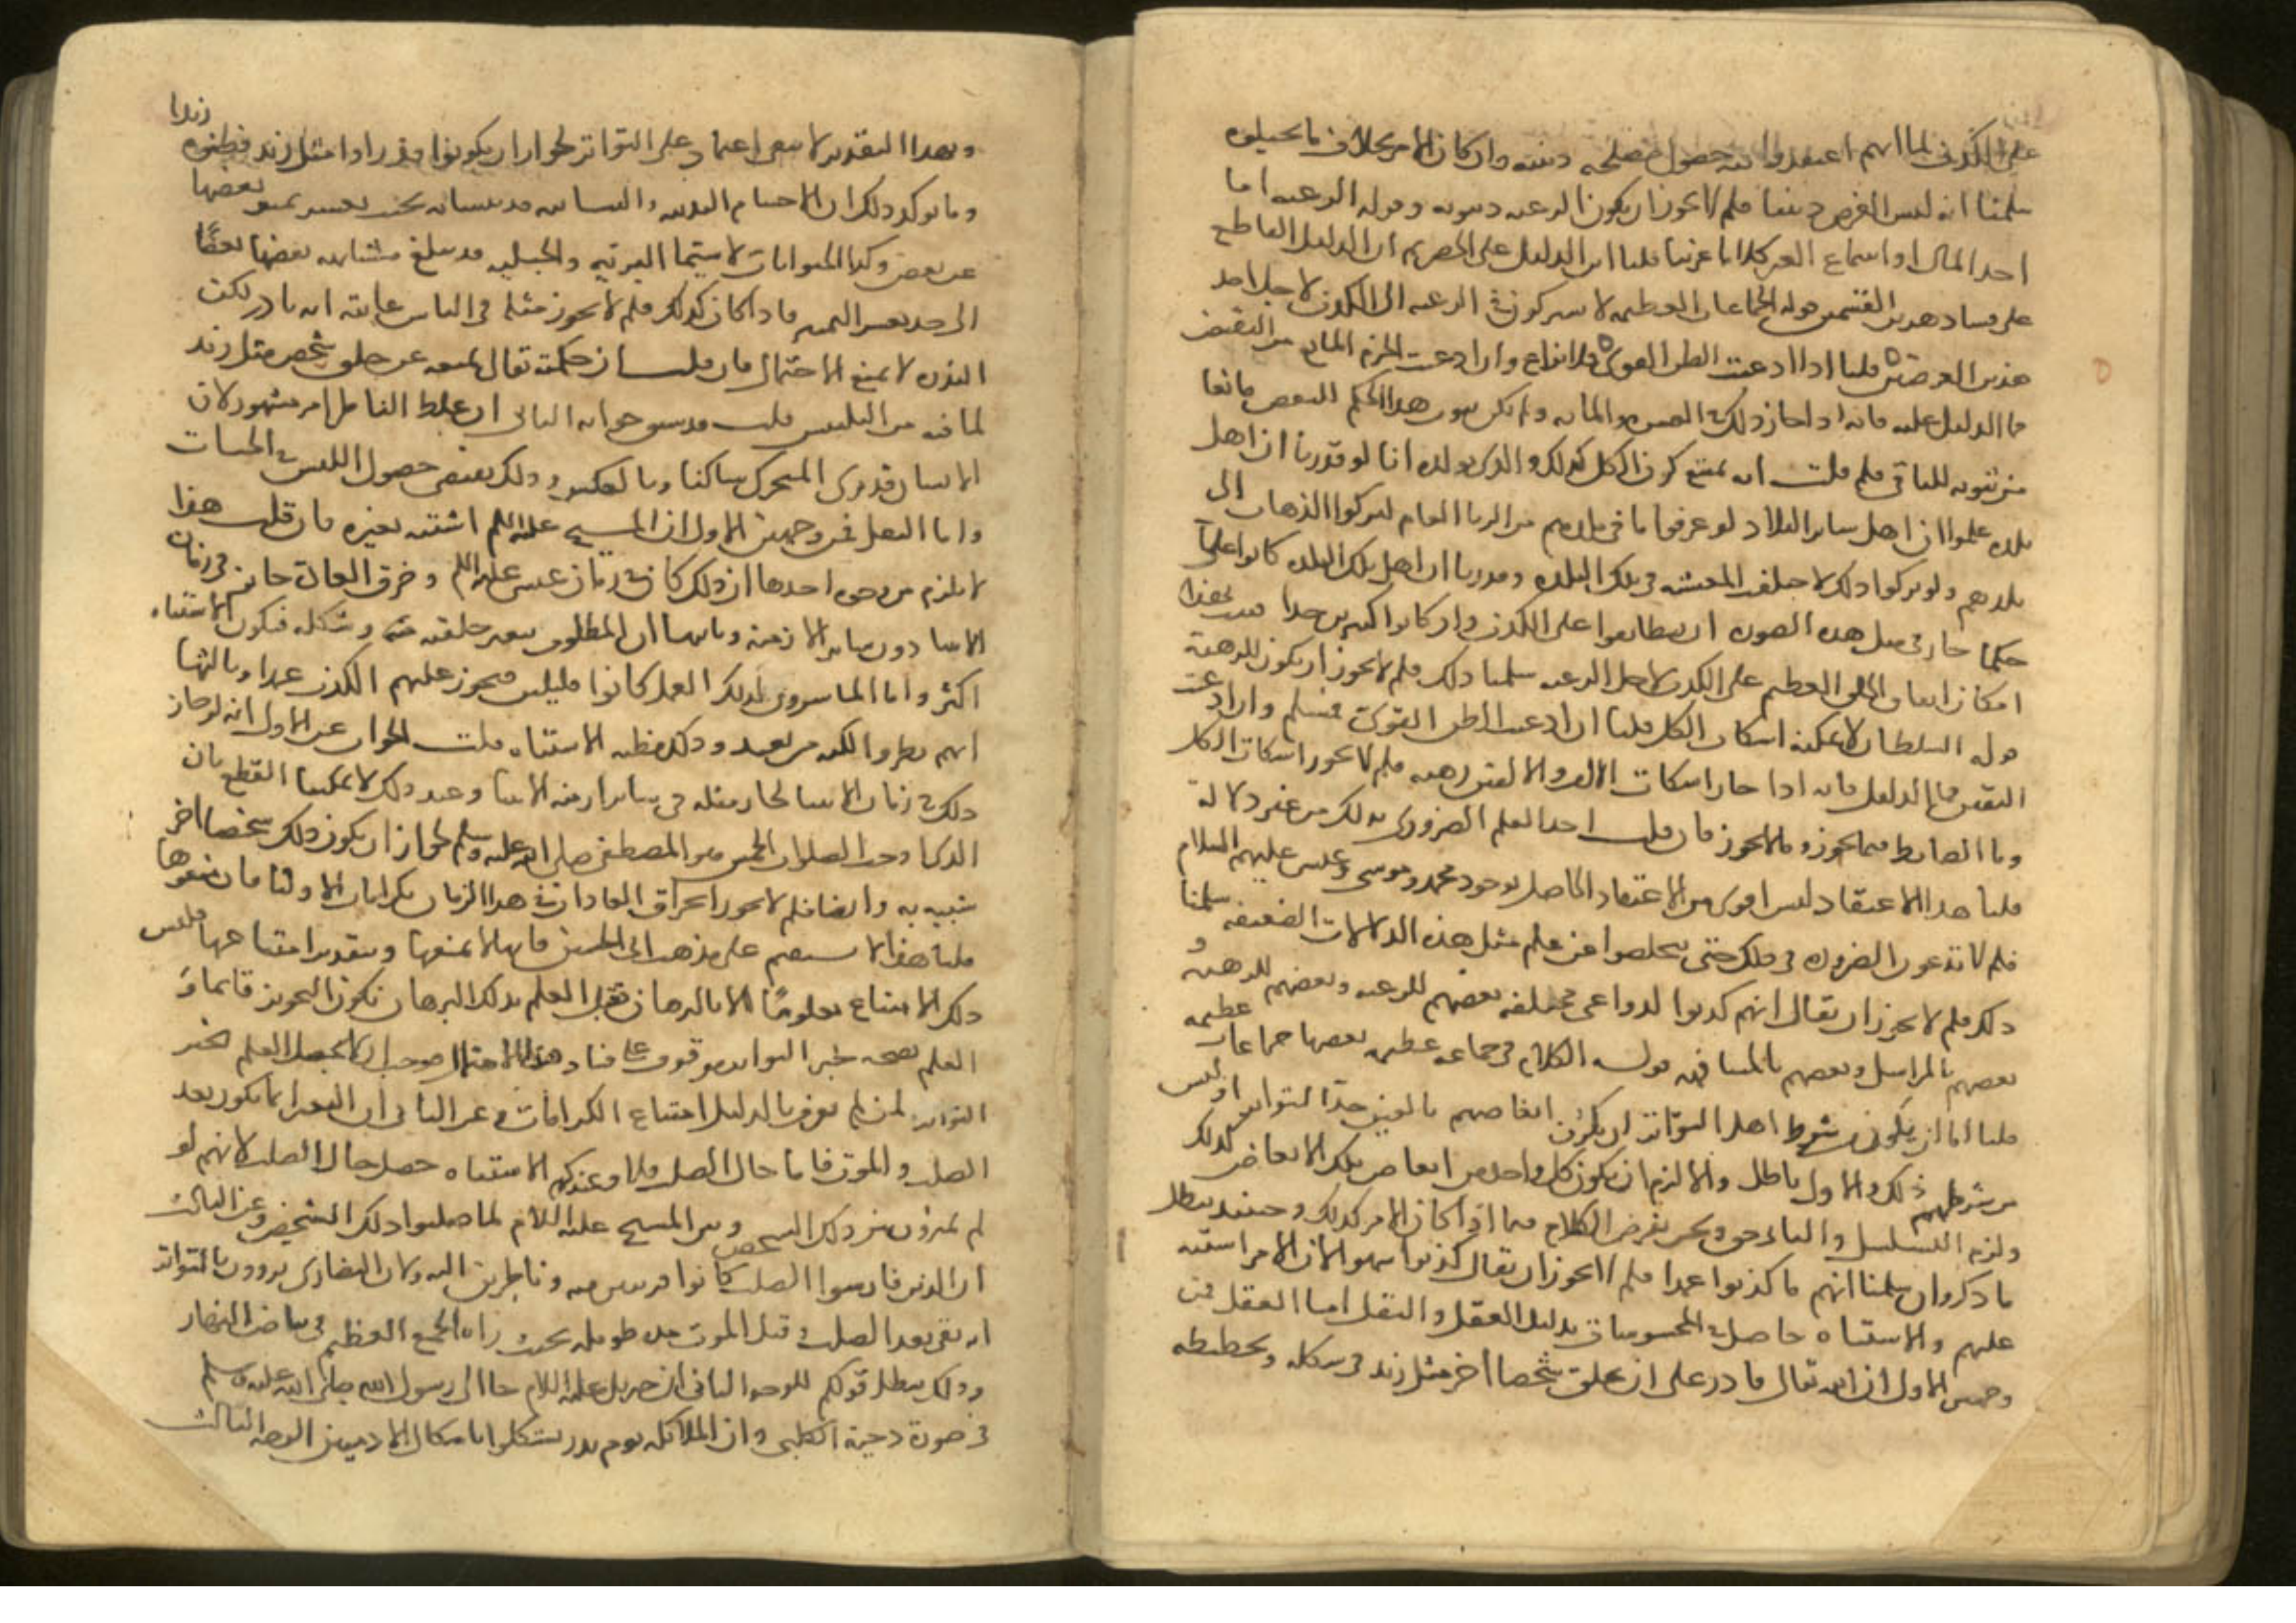 على الكذب لما انهم اعتقدوا فيه حصول مصلحة دينية وان كان الامر بخلاف ما تخيلوه
سلمنا انه ليس الغرض دينيا فلم لا يجوز ان يكون الرغبة دنيوية وقوله الرغبة اما
اخذ المال او اسماع الغير كلاما غريبا قلنا اين الدليل على الحصر ثم ان الدليل القاطع
على فساد هذين القسمين قوله الجماعات العظيمة لا يشتركون في الرغبة الى الكذب لاجل احد
هذين الغرضين قلنا اذا ادعيت الظن القوي فلا نزاع وان ادعيت الجزم المانع من النقيض
فما الدليل عليه فانه اذا جاز ذلك في العشرة والمائة ولم يكن ثبوت هذا الحكم للبعض مانعا
من ثبوته للباقي فلم قلت انه يمتنع كون الكل كذلك والذي يؤكده انا لو قدرنا ان اهل
بلده علموا ان اهل ساير البلاد لو عرفوا ما في بلدهم من الوبا العام لتركوا الذهاب الى
بلدهم ولو تركوا ذلك لاختلفت المعيشة في تلك البلدة وقدرنا ان اهل تلك البلدة كانوا علما
حكما جاز في مثل هذه الصورة ان يتطابقوا على الكذب وان كانوا كثيرين جدا فثبت بهذا
امكان اتفاق الخلق العظيم على الكذب لاجل الرغبة سلمنا ذلك فلم لا يجوز ان يكون للرهبة
قوله السلطان لا يمكنه اسكات الكل قلنا ان ادعيت الظن القوي فمسلم وان ادعيت
اليقين فما الدليل فانه اذا جاز اسكات الالف والالفين رهبة فلم لا يجوز اسكات الكل
وما الضابط فيما يجوز وما لا يجوز فان قلت اجد العلم الضروري بذلك من غير دلالة
قلنا هذا الاعتقاد ليس اقوى من الاعتقاد الحاصل بوجود محمد وموسى وعيسى عليهم السلام
فلم لا تدعون الضرورة في ذلك حتى تخلصوا عن مثل هذه الدلالات الضعيفة سلمنا
ذلك فلم لا يجوز ان يقال انهم كذبوا لدواعي مختلفة بعضهم للرغبة وبعضهم للرهبة و
بعضهم بالمراسل وبعضهم بالمشافهة قوله الكلام في جماعة عظيمة بعضها جماعات عظيمة
قلنا اما ان يكون من شرط اهل التواتر ان يكون ابعاضهم بالغين حد التواتر او ليس
من شرطهم ذلك والاول باطل والا لزم ان يكون كل واحد من ابعاض تلك الابعاض كذلك
ولزم التسلسل والثاني حق ونحن نفرض الكلام فيما اذا كان الامر كذلك وحينئذ يبطل
ما ذكروا سلمنا انهم ما كذبوا عمدا فلم لا يجوز ان يقال كذبوا سهوا لان الامر اشتبه
عليهم والاشتباه حاصل في المحسوسات بدليل العقل والنقل اما العقل فمن
وجهين الاول ان الله تعالى قادر على ان يخلق شخصا اخر مثل زيد في شكله وتخطيطه
وبهذا التقدير لا يبقى اعتماد على التواتر لجواز ان يكونوا قد راوا مثل زيد فظنوه زيدا
ومما يوكد ذلك ان الاجسام المعدنية والنباتية قد يتشابه بحيث يعسر تمييز بعضها
عن بعض وكذا الحيوانات لا سيما البرية والجبلية قد يبلغ مشابهة بعضها بعضا
الى حد يعسر التمييز فاذا كان كذلك فلم لا يجوز مثله في الناس غايته انه نادر لكن
الندرة لا يمنع الاحتمال فان قلت ان حكمته تعالى تمنعه عن خلق شخص مثل زيد
لما فيه من التلبيس قلت قد سبق جوابه الثاني ان غلط الناظر امر مشهور لان
الانسان قد يرى المتحرك ساكنا وبالعكس وذلك يقتضي حصول اللبس في الحسيات
واما النقل فمن وجهين الاول ان المسيح عليه السلم اشتبه بغيره فان قلت هذا
لا يلزم من وجوه احدها ان ذلك كان في زمان عيسى عليه السلم وخرق العادة جايز في زمان
الانبيا دون ساير الازمنة وثانيها ان المصلوب يتغير خلقته وشكله فيكون الاشتباه
اكثر واما المباشرون لذلك العمل كانوا قليلين فيجوز عليهم الكذب عمدا وثالثها
انهم نظروا اليه من بعيد وذلك مظنة الاشتباه قلت الجواب عن الاول انه لو جاز
ذلك في زمان الانبيا لجاز مثله في ساير ازمنة الانبيا وعند ذلك لا يمكننا القطع بان
الذي اوجب الصلوات الخمس هو المصطفى صلى الله عليه وسلم لجواز ان يكون ذلك شخصا اخر
شبيه به وايضا فلم لا يجوز انخراق العادات في هذا الزمان بكرامات الاوليا فان منعوها
قلنا هذا لا يستقيم على مذهب ابي الحسين فانه لا يمنعها وبتقدير امتناعها فليس
ذلك الامتناع معلوما الا بالبرهان فقبل العلم بذلك البرهان يكون التجويز قايما و
العلم بصحة خبر التواتر موقوف على فساد هذا الاحتمال فوجب ان لا يحصل العلم بخبر
التواتر لمن لم يعرف بالدليل امتناع الكرامات وعن الثاني ان التغير انما يكون بعد
الصلب والموت فاما حال الصلب فلا وعندكم الاشتباه حصل حال الصلب لانهم لو
لم يميزوا بين ذلك الشخص وبين المسيح عليه السلام لما صلبوا ذلك الشخص وعن الثالث
ان الذين باشروا الصلب كانوا قريبين منه وناظرين اليه ولان النصارى يروون بالتواتر
انه بقي بعد الصلب وقبل الموت مدة طويلة بحيث راه الجمع العظيم في بياض النهار
وذلك يبطل قولكم الوجه الثاني ان جبريل عليه السلام جا الى رسول الله صلى الله عليه وسلم
في صورة دحية الكلبي وان الملائكة يوم بدر تشكلوا باشكال الادميين الوجه الثالث